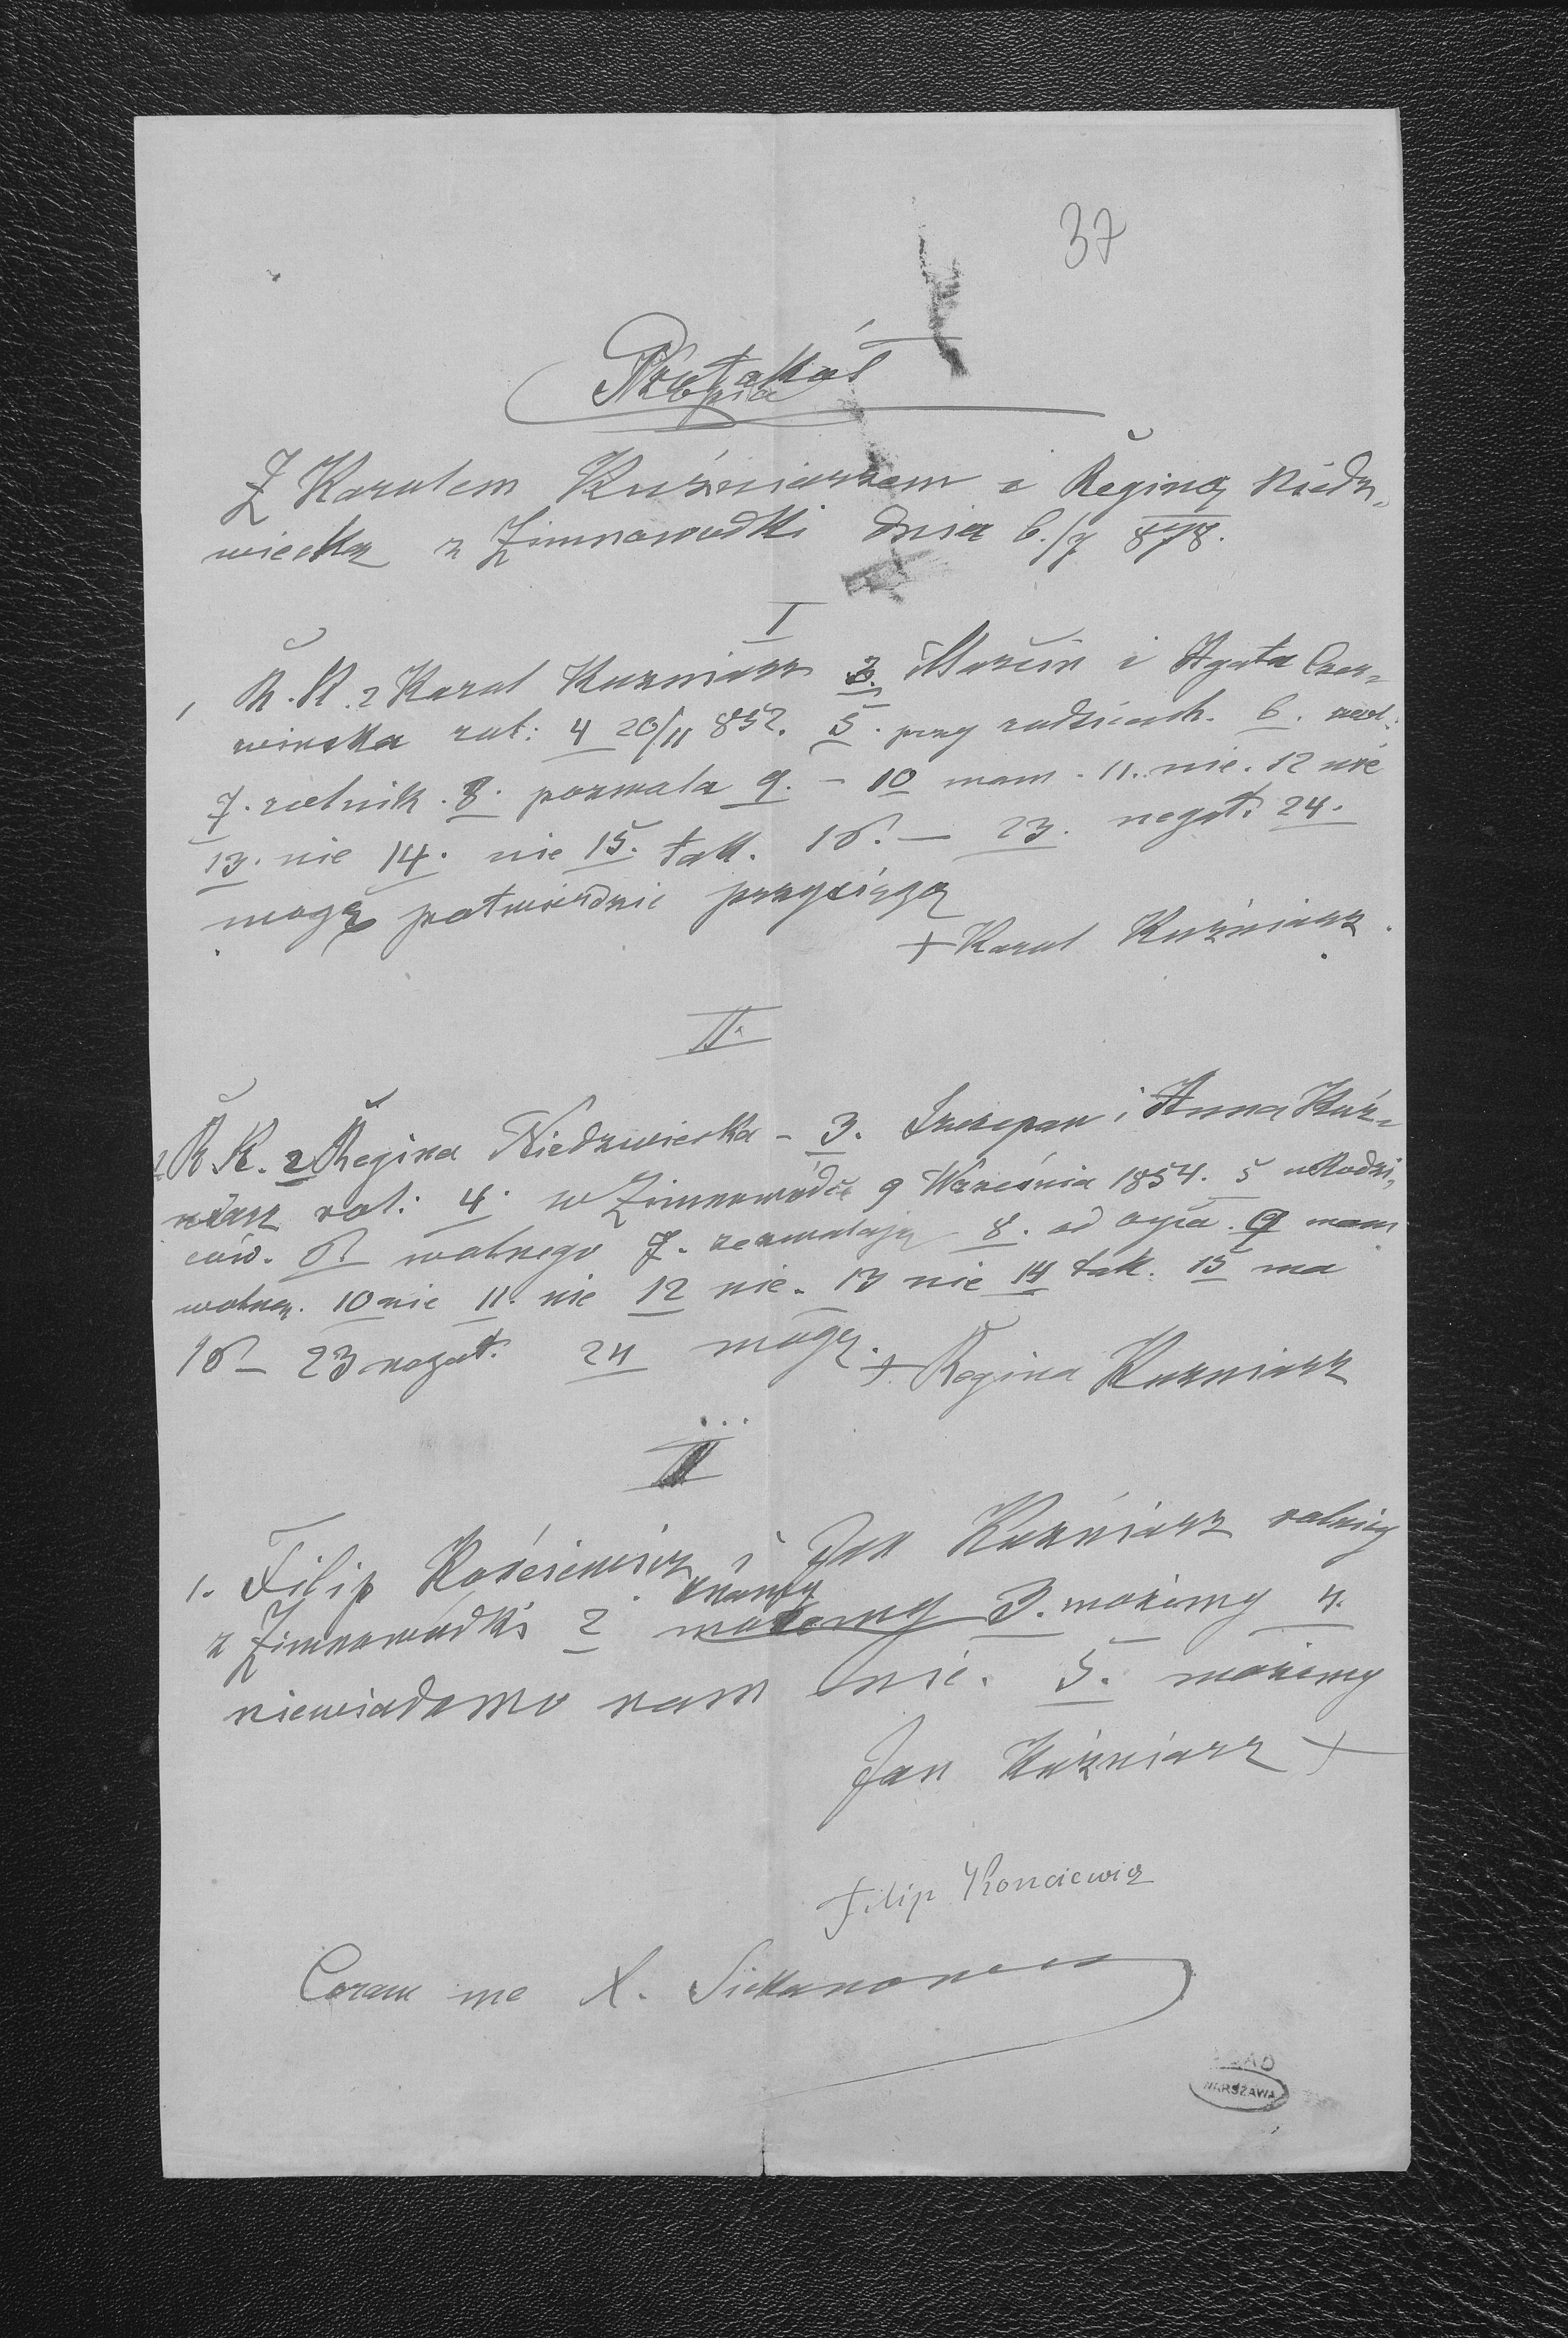 37
Protokół
Z Karolem Kuźniarzem i Reginą Niedz-
wiecką z Zimnowodki dnia 6./7 878.
I
1 R. K. 2 Karol Kuzniarz 3. Marcin i Agata Czer-
winska rol: 4 20/11 852. 5. przy rodzicach. 6.
7. rolnik. 8. pozwala 9. – 10 mam. 11. nie. 12 nie
13. nie 14. nie 15. tak. 16. – 23. negat. 24.
mogę potwierdzic przysięgą
+ Karol Kuźniarz.
II.
1 R. K. 2 Regina Niedzwiecka – 3. Szczepan i Anna Kuź-
niarz rol: 4. w Zimnowódce 9 Września 1854. 5 u Rodzi-
ców. 6. wolnego 7. zezwalają 8. od ojca. 9 mam
wolną. 10 nie 11. nie 12 nie. 13 nie 14 tak. 15 ma
16 – 23 negat. 24 mogę.
+ Regina Kuzniarz
III
1. Filip Kośćiewicz i Jan Kuźniarz rolnicy
z Zimnowódki 2. możemy znamy 3. możemy 4.
niewiadomo nam nic. 5. możemy
Jan Kuźniarz +
Filip Konciewicz
Coram me X.
AGAD
WARSZAWA